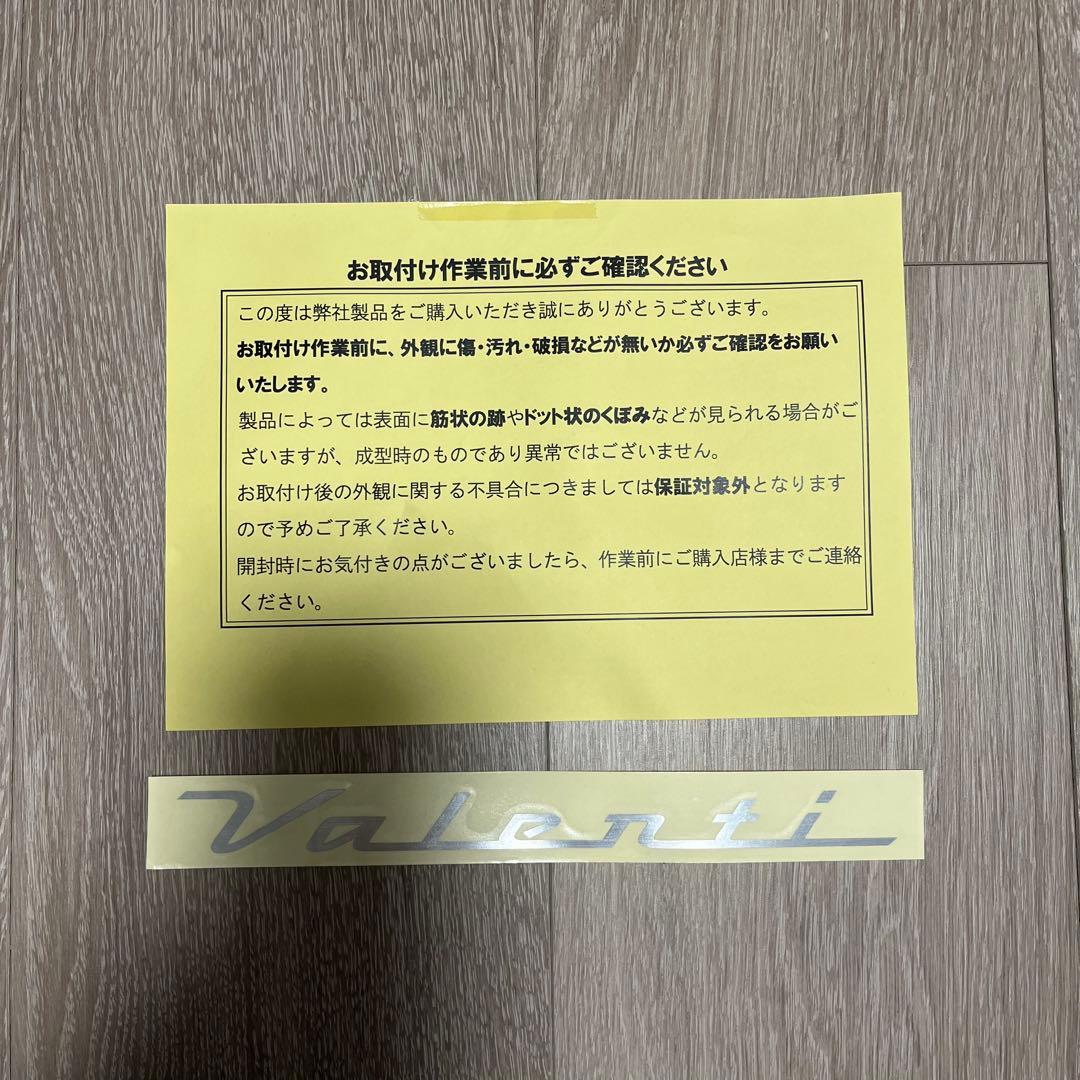 お取付け作業前に必ずご確認ください
この度は弊社製品をご購入いただき誠にありがとうございます。
お取付け作業前に、外観に傷・汚れ・破損などが無いか必ずご確認をお願い
いたします。
製品によっては表面に筋状の跡やドット状のくぼみなどが見られる場合がご
ざいますが、成型時のものであり異常ではございません。
お取付け後の外観に関する不具合につきましては保証対象外となります
ので予めご了承ください。
開封時にお気付きの点がございましたら、作業前にご購入店様までご連絡
ください。
Valenti